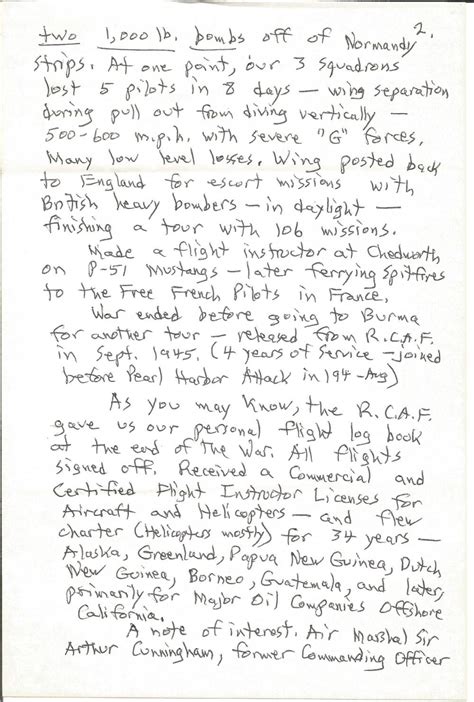 2.
two 1,000 lb. bombs off of Normandy
strips. At one point, our 3 squadrons
lost 5 pilots in 8 days — wing separation
during pull out from diving vertically —
500-600 m.p.h. with severe "G" forces.
Many low level losses. Wing posted back
to England for escort missions with
British heavy bombers — in daylight —
finishing a tour with 106 missions.
Made a flight instructor at Chedworth
on P-51 Mustangs — later ferrying Spitfires
to the Free French Pilots in France.
War ended before going to Burma
for another tour — released from R.C.A.F.
in Sept. 1945. (4 years of Service — joined
before Pearl Harbor Attack in 194-Aug)
As you may know, the R.C.A.F.
gave us our personal flight log book
at the end of The War. All flights
signed off. Received a Commercial and
Certified Flight Instructor Licenses for
Aircraft and Helicopters — and flew
charter (Helicopters mostly) for 34 years —
Alaska, Greenland, Papua New Guinea, Dutch
New Guinea, Borneo, Guatemala, and later,
primarily for Major Oil Companies Offshore
California.
A note of interest. Air Marshal Sir
Arthur Cunningham, former Commanding Officer